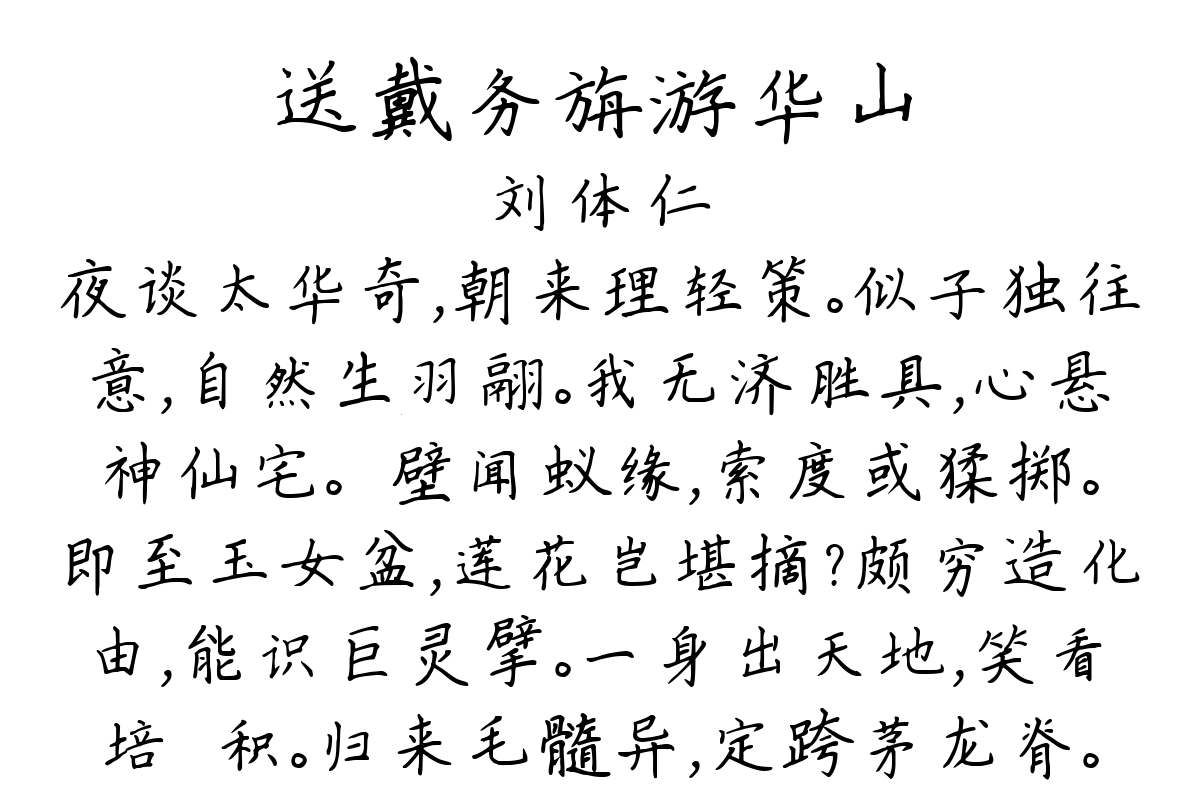 送戴务旃游华山
刘体仁
夜谈太华奇,朝来理轻策。似子独往
意,自然生羽翮。我无济胜具,心悬
神仙宅。 壁闻蚁缘,索度或猱掷。
即至玉女盆,莲花岂堪摘?颇穷造化
由,能识巨灵擘。一身出天地,笑看
培 积。归来毛髓异,定跨茅龙脊。